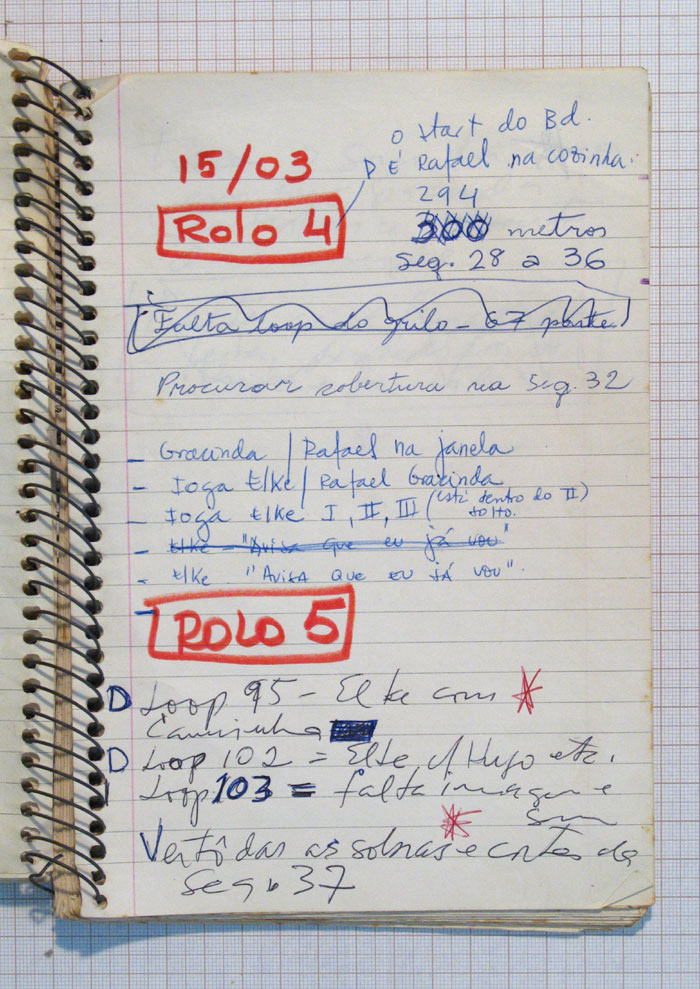 15/03
Rolo 4
O start do Bd.
D É Rafael na cozinha.
294
300 metros
Seq. 28 a 36
Falta loop do grilo - 67 parte
Procurar cobertura na Seq. 32
- Gracinda / Rafael na janela
- Ioga Elke / Rafael Gracinda
- Ioga Elke I, II, III (está dentro do II)
- Elke - "Avisa que eu já vou"
- Elke "Avisa que eu já vou".
ROLO 5
D Loop 95 - Elke com
Caminha
D Loop 102 = Elke c/ Hugo etc.
Loop 103 = falta imagem e
som
Ver tôdas as sobras e cortes da
Seq. 37